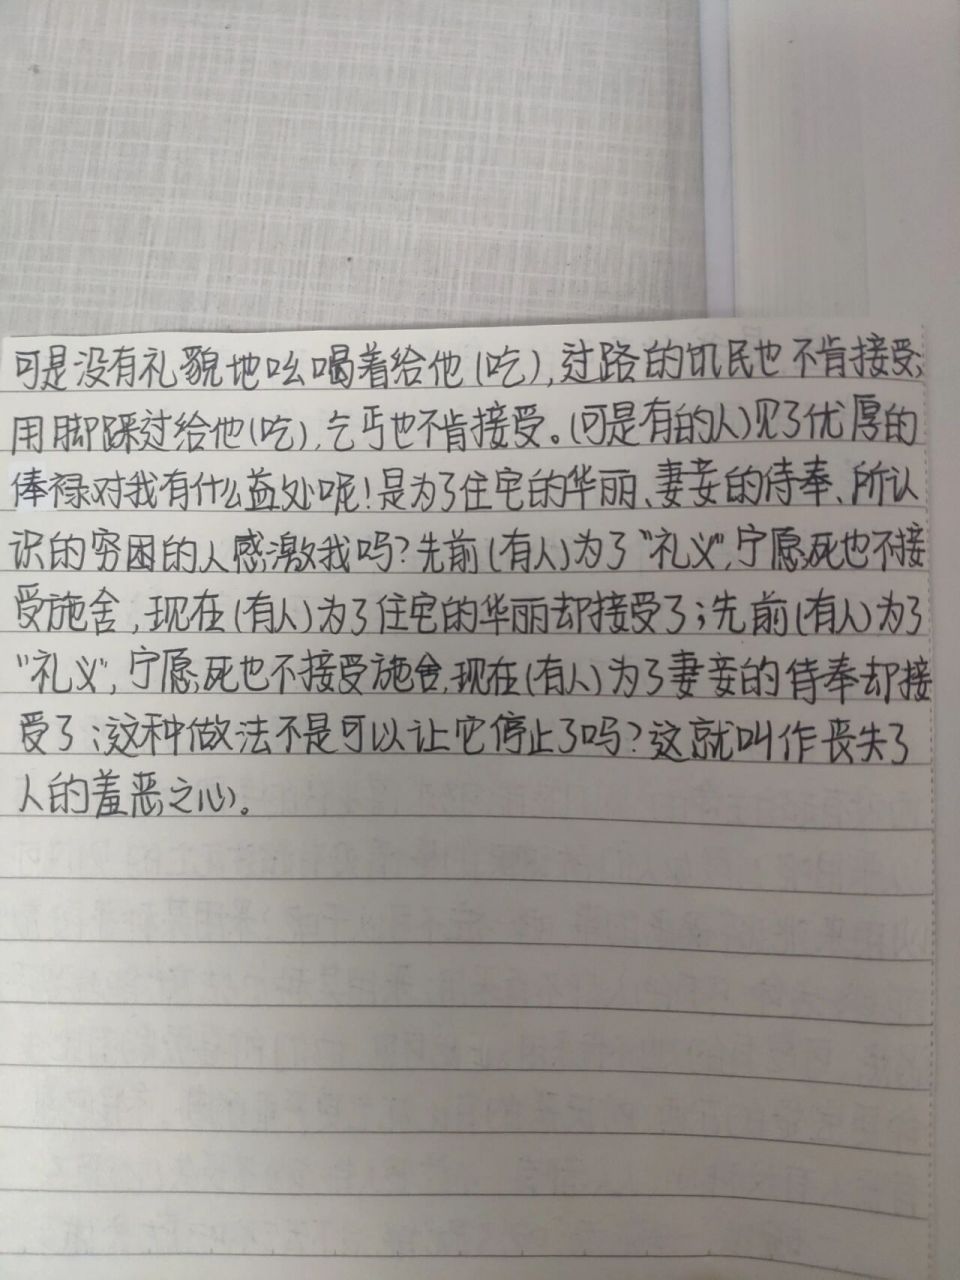 可是没有礼貌地吆喝着给他(吃),过路的饥民也不肯接受;
用脚踩过给他(吃),乞丐也不肯接受。(可是有的人)见了优厚的
俸禄对我有什么益处呢!是为了住宅的华丽、妻妾的侍奉、所认
识的穷困的人感激我吗?先前(有人)为了“礼义”,宁愿死也不接
受施舍,现在(有人)为了住宅的华丽却接受了;先前(有人)为了
“礼义”,宁愿死也不接受施舍,现在(有人)为了妻妾的侍奉却接
受了;这种做法不是可以让它停止了吗?这就叫作丧失了
人的羞恶之心)。